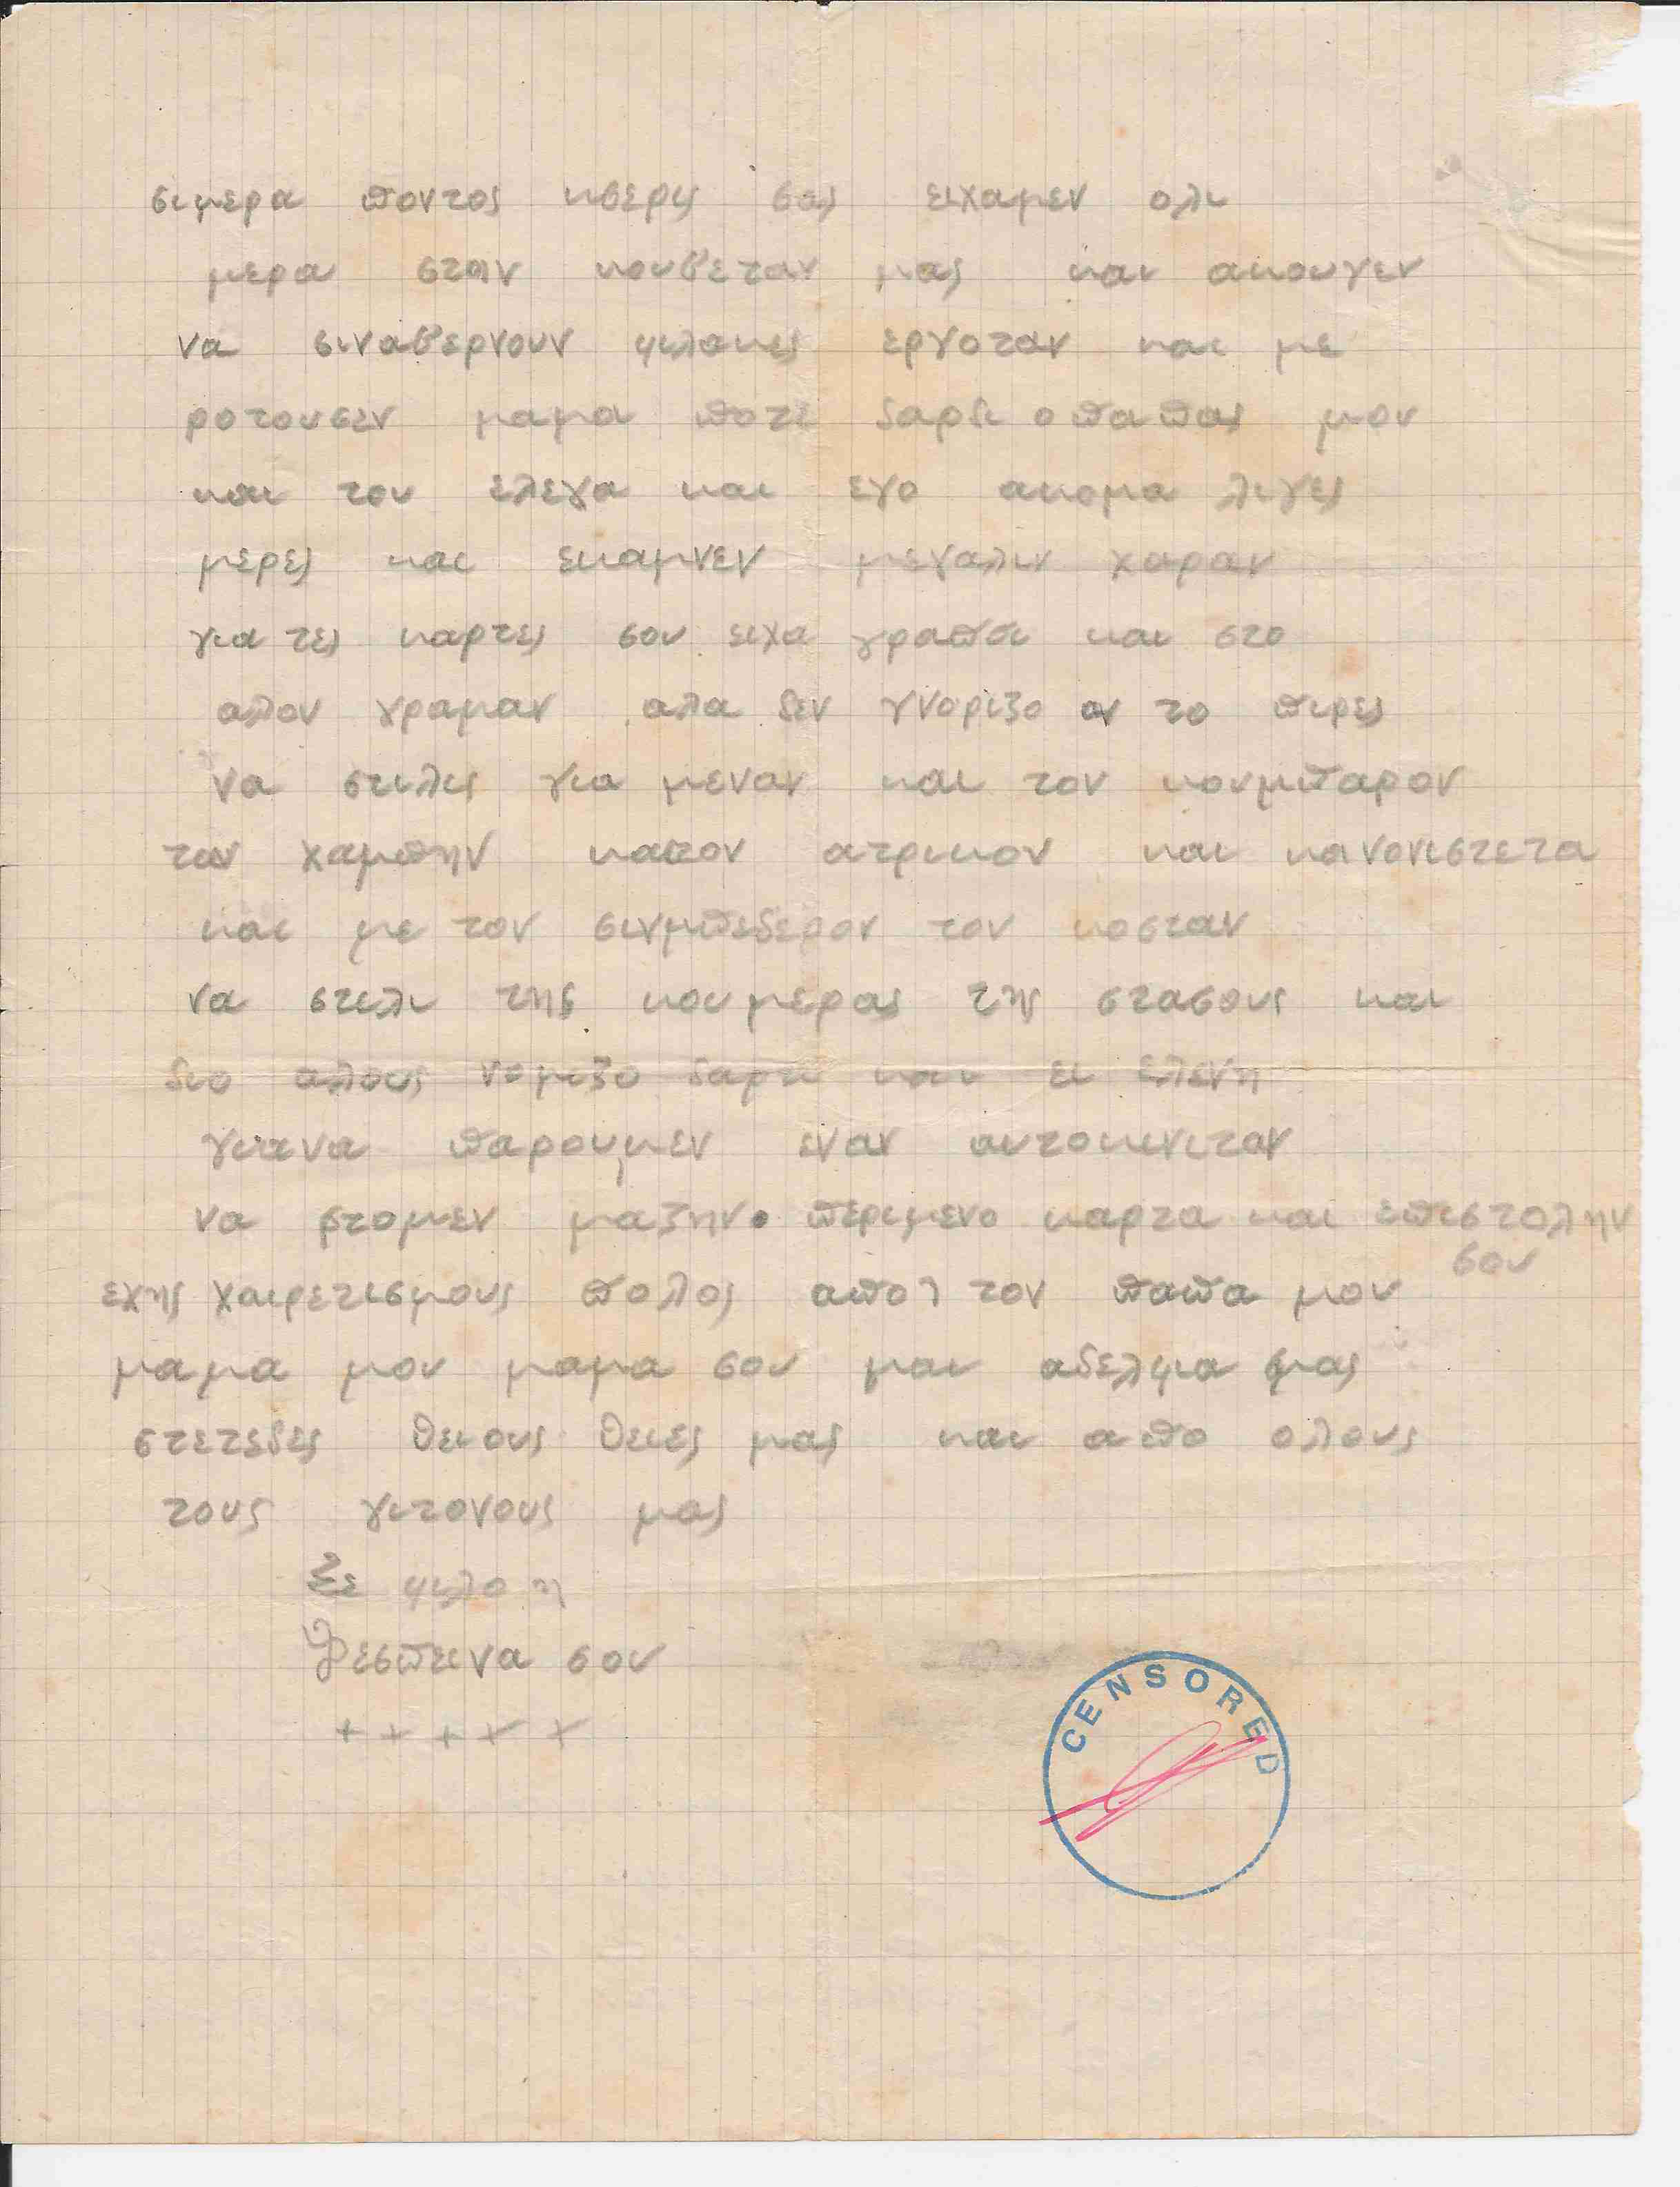 σιμερα ποντος κσερις σας ειχαμεν ολι
μερα στην κουβεταν μας και ακουγεν
να σιναβερνουν φιλακες εργοταν και με
ροτουσεν μαμα ποτε δαρδι ο παπας μου
και του ελεγα και εγο ακομα λιγες
μερες και εκαμνεν μεγαλιν χαραν
για τες καρτες σου ειχα γραπσι και στο
αλον γραμαν αλα δεν γνοριζο αν το πιρες
να στιλις για μεναν και τον κουμπαρον
τον χαμπην κατον ατρικον και κανονιστετα
και με τον σινμπεδερον τον κοσταν
να στιλι της κουμερας της στασους και
διο αλους νομιζο δαρτι και ει ελενη
γιανα παρουμεν εναν αυτοκινιταν
να ρτομεν μαζην. περιμενο καρτα και επιστολην
σου
εχης χαιρετισμους πολος απο τον παπα μου
μαμα μου μαμα σου και αδελφια μας
στετεδες θειους θειες μας και απο ολους
τους γιτονους μας
Σε φιλο η
Δεσπεινα σου
+ + + + +
CENSORED